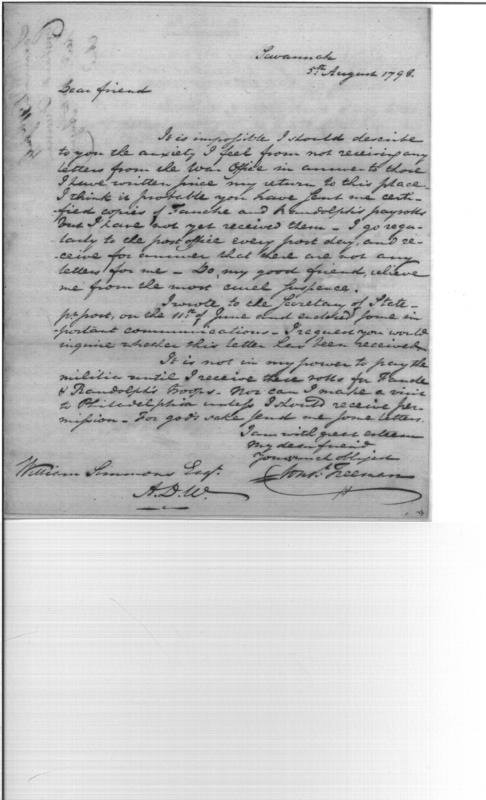 Savannah
5th August 1798.
Dear friend
It is impossible I should describe
to you the anxiety I feel from not receiving any
letters from the War Office in answer to those
I have written since my return to this place.
I think it probable you have sent me certi-
fied copies of Fauche and Randolph's payrolls
but I have not yet received them - I go regu-
larly to the post office every post day, and re-
ceive for answer that there are not any
letters for me - Do, my good friend, relieve
me from the most cruel suspence.
I wrote to the Secretary of State -
pr post, on the 11th of June and enclosed some im
portant communications - I request you would
inquire whether this letter has been received
It is not in my power to pay the
militia until I receive these rolls for Fauche
& Randolph's troops. Nor can I make a visit
to Philadelphia unless I should receive per-
mission - For god's sake send me some letters.
I am with great esteem
My dear friend
Your much obliged
Const. Freeman
William Simmons Esqr.
A.D.W.